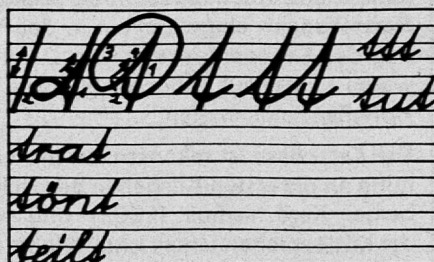 t t t t ttt
tut
trat
tönt
teilt